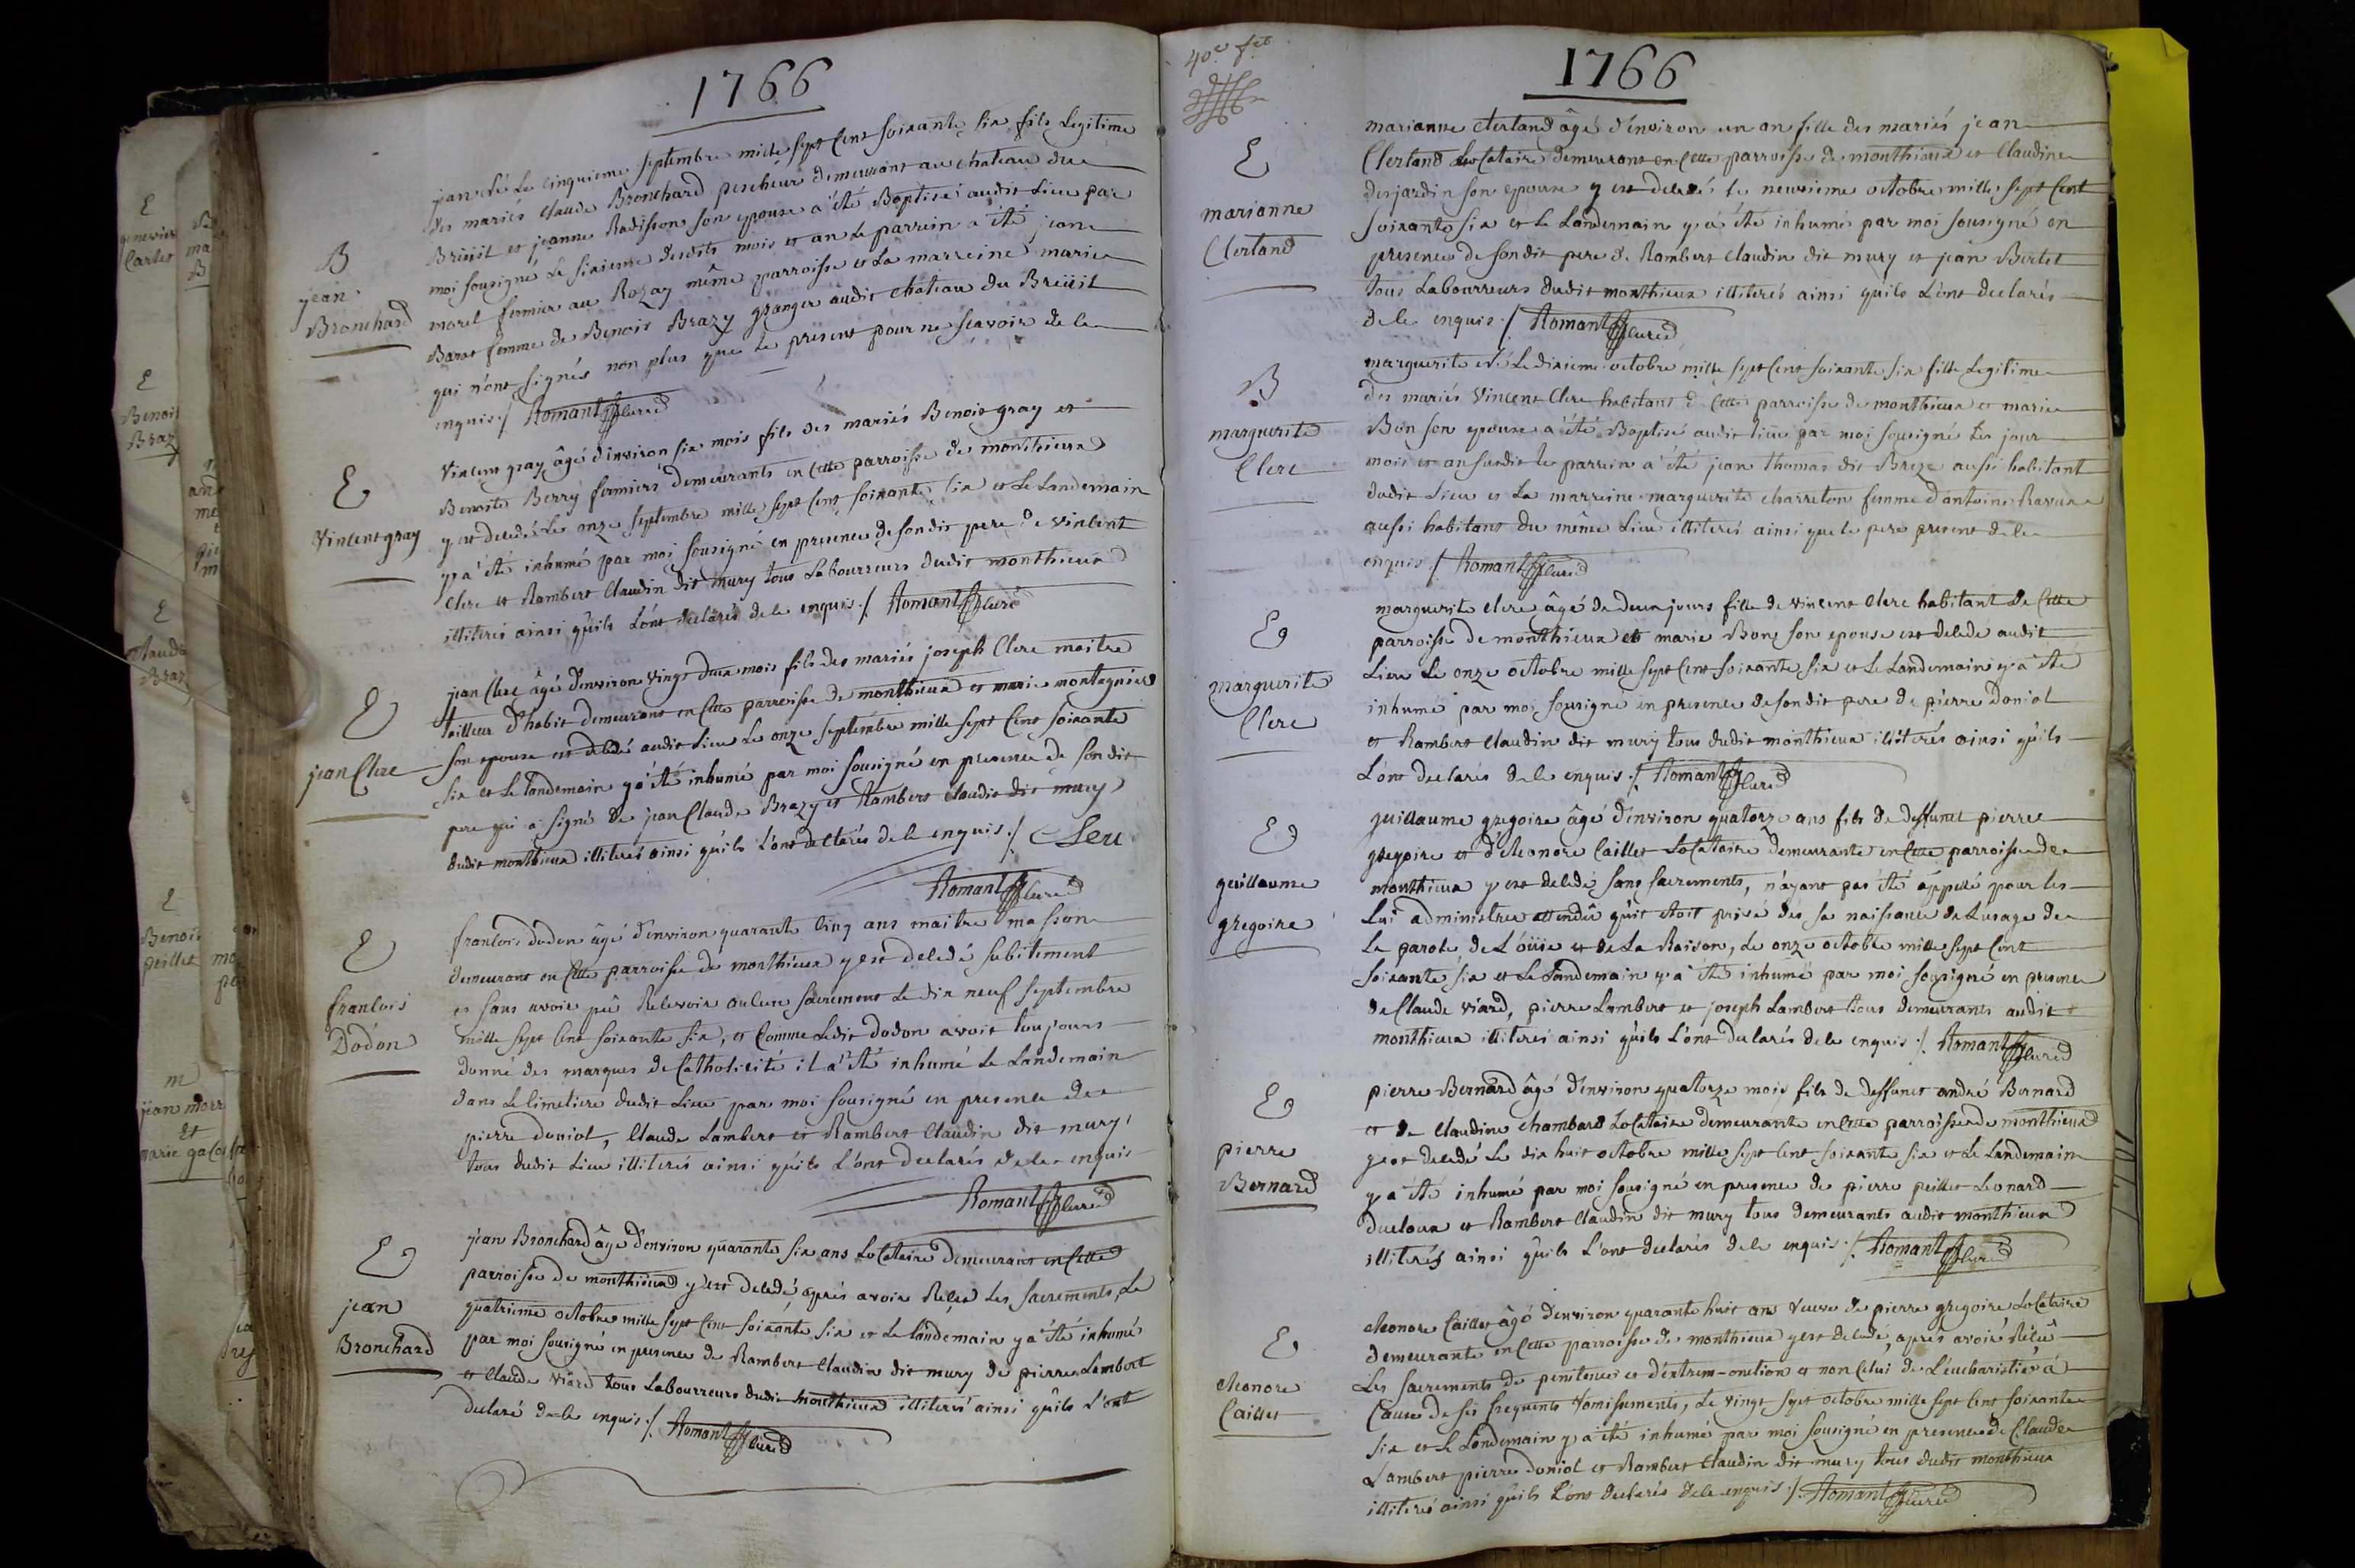 1766
B
jean
Bronchard
jean né Le cinquieme septembre mille sept Cent soixante six fils Legitime
des mariés Claude Bronchard pescheur demeurant au chateau du
Breüit et jeanne Radisson son epouse a été Baptisé audit Lieu par
moi sousigné Le sixieme desdits mois et an Le parrein a été jean
morel fermier au Rozay même parroisse et La marreine marie
Barat femme de Benoit Brazy granger audit chateau du Breüit
qui n'ont signés non plus que Le present pour ne scavoir de le
enquis ./. Romant Curé
E
Vincent gray
Vincent gray âgé d'environ six mois fils des mariés Benoit gray et
Benoite Berry fermiers demeurants en Cette parroisse de monthieux
y est decedé Le onze septembre mille sept Cent soixante six et Le Landemain
y a été inhumé par moi sousigné en presence de son dit pere de Vincent
Clere et Rambert Claudin dit mury tous Labourreurs dudit monthieux
illiterés ainsi qu'ils L'ont declarés de le enquis ./. Romant Curé
E
jean Clere
jean Clere âgé d'environ vingt deux mois fils des mariés joseph Clere maitre
tailleur d'habit demeurant en Cette parroisse de monthieux et marie montagnier
son epouse est decedé audit Lieu Le onze septembre mille sept Cent soixante
six et Le Landemain y a été inhumé par moi sousigné en presence de son dit
pere qui a signé de jean Claude Brazy et Rambert Claudin dit mury
dudit monthieux illiterés ainsi qu'ils L'ont declarés de le enquis ./. Clere
Romant Curé
E
francois
Dodon
francois dodon âgé d'environ quarante Cinq ans maitre masson
demeurant en Cette parroisse de monthieux y est decedé subitement
et sans avoir pû Recevoir aucun sacrement Le dix neuf septembre
mille sept Cent soixante six, et Comme Ledit dodon avoit toujours
donné des marques de Catholicité il a été inhumé Le Landemain
dans Le Cimetiere dudit Lieu par moi sousigné en presence de
pierre doniol, Claude Lambert et Rambert Claudin dit mury
tous dudit Lieu illiterés ainsi qu'ils L'ont declarés de le enquis
Romant Curé
E
jean
Bronchard
jean Bronchard âgé d'environ quarante six ans Locataire demeurant en Cette
parroisse de monthieux y est decedé, après avoir Reçeu Les sacrements, Le
quatrieme octobre mille sept Cent soixante six et Le Landemain y a été inhumé
par moi sousigné en presence de Rambert Claudin dit mury de pierre Lambert
et Claude Viard tous Labourreurs dudit monthieux illiterés ainsi qu'ils L'ont
declaré de le enquis ./. Romant Curé
40e. fet
1766
E
marianne
Clertand
marianne Clertand âgé d'environ un an fille des mariés jean
Clertand Locataire demeurant en Cette parroisse de monthieux et Claudine
desjardin son epouse y est decedé Le neuvieme octobre mille sept Cent
soixante six et Le Landemain y a été inhumé par moi sousigné en
presence de sondit pere de Rambert Claudin dit mury et jean Bertet
tous Labourreurs dudit monthieux illiterés ainsi qu'ils L'ont declarés
de le enquis ./. Romant Curé
B
marguerite
Clere
marguerite né Le dixieme octobre mille sept Cent soixante six fille Legitime
des mariés Vincent Clere habitant de Cette parroisse de monthieux et marie
Bon son epouse a été Baptisé audit Lieu par moi sousigné Les jour
mois et an susdit Le parrein a été jean thomas dit Breze aussi habitant
dudit Lieu et La marreine marguerite charreton femme d'antoine Ravure
aussi habitant du même Lieu illiterés ainsi que le pere present de le
enquis ./. Romant Curé
E
marguerite
Clere
marguerite Clere âgé de deux jours fille de Vincent Clere habitant de Cette
parroisse de monthieux et marie Bon son epouse est decedé audit
Lieu Le onze octobre mille sept Cent soixante six et Le Landemain y a été
inhumé par moi sousigné en presence de sondit pere de pierre doniol
et Rambert Claudin dit mury tous dudit monthieux illiterés ainsi qu'ils
L'ont declarés de le enquis ./. Romant Curé
E
guillaume
gregoire
guillaume gregoire âgé d'environ quatorze ans fils de deffunct pierre
gregoire et d'eleonore Caillet Locataire demeurante en Cette parroisse de
monthieux y est decedé sans sacrements, n'ayant pas été appellé pour les
Lui administrer attendû qu'il etoit privé dés sa naissance de L'usage de
La parole de L'oüie et de La Raison, Le onze octobre mille sept Cent
soixante six et Le Landemain y a été inhumé par moi sousigné en presence
de Claude Viard, pierre Lambert et joseph Lambert tous demeurants audit
monthieux illiterés ainsi qu'ils L'ont declarés de le enquis ./. Romant Curé
E
pierre
Bernard
pierre Bernard âgé d'environ quatorze mois fils de deffunct andré Bernard
et de Claudine Chambard Locataire demeurante en Cette parroisse de monthieux
y est decedé Le dix huit octobre mille sept Cent soixante six et Le Landemain
y a été inhumé par moi sousigné en presence de pierre peillet Leonard
ducloux et Rambert Claudin dit mury tous demeurants audit monthieux
illiterés ainsi qu'ils L'ont declarés de le enquis ./. Romant Curé
E
eleonore
Caillet
eleonore Caillet âgé d'environ quarante huit ans veuve de pierre gregoire Locataire
demeurante en Cette parroisse de monthieux y est decedé, après avoir Réçeu
Les sacrements de penitence et d'extrem-onction et non Celui de L'eucharistie à
Cause de ses frequents Vomissements, Le vingt sept octobre mille sept Cent soixante
six et Le Landemain y a été inhumé par moi sousigné en presence de Claude
Lambert pierre doniol et Rambert Claudin dit mury tous dudit monthieux
illiterés ainsi qu'ils L'ont declarés de le enquis ./. Romant Curé